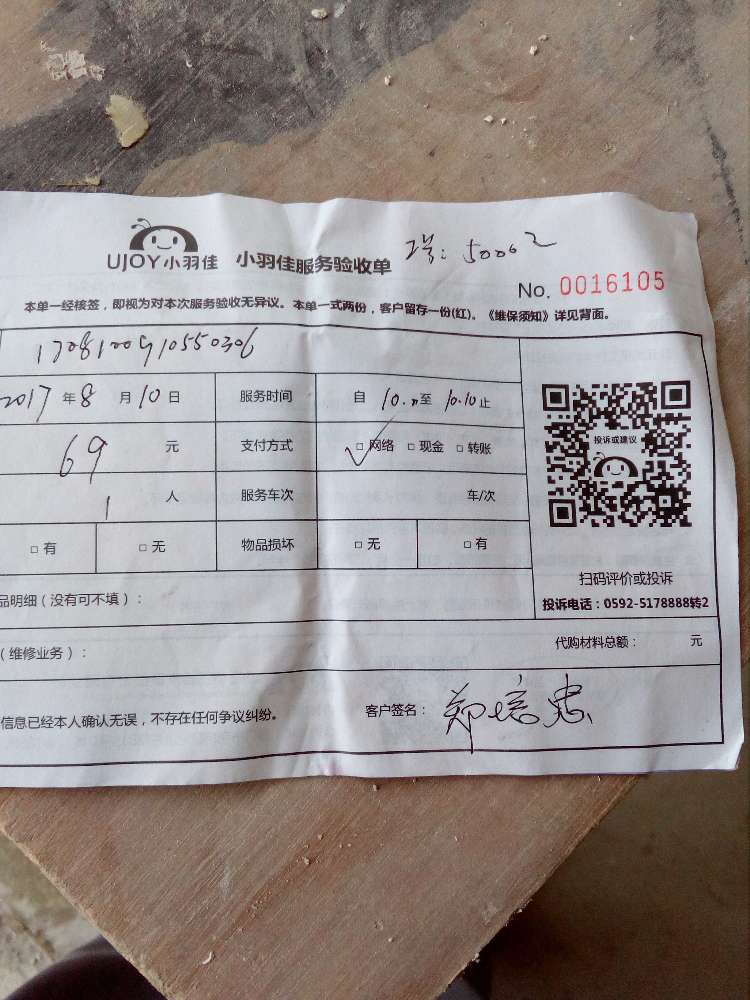 UJOY小羽佳 小羽佳服务验收单 工号：50062
No. 0016105
本单一经核签，即视为对本次服务验收无异议。本单一式两份，客户留存一份(红)。《维保须知》详见背面。
2017年8月10日 服务时间 自 至10.10止
69 元 支付方式 □网络 □现金 □转账
投诉或建议
1 人 服务车次 车/次
□有 □无 物品损坏 □无 □有
扫码评价或投诉
品明细（没有可不填）：
投诉电话：0592-5178888转2
（维修业务）： 代购材料总额： 元
信息已经本人确认无误，不存在任何争议纠纷。 客户签名：郑培忠